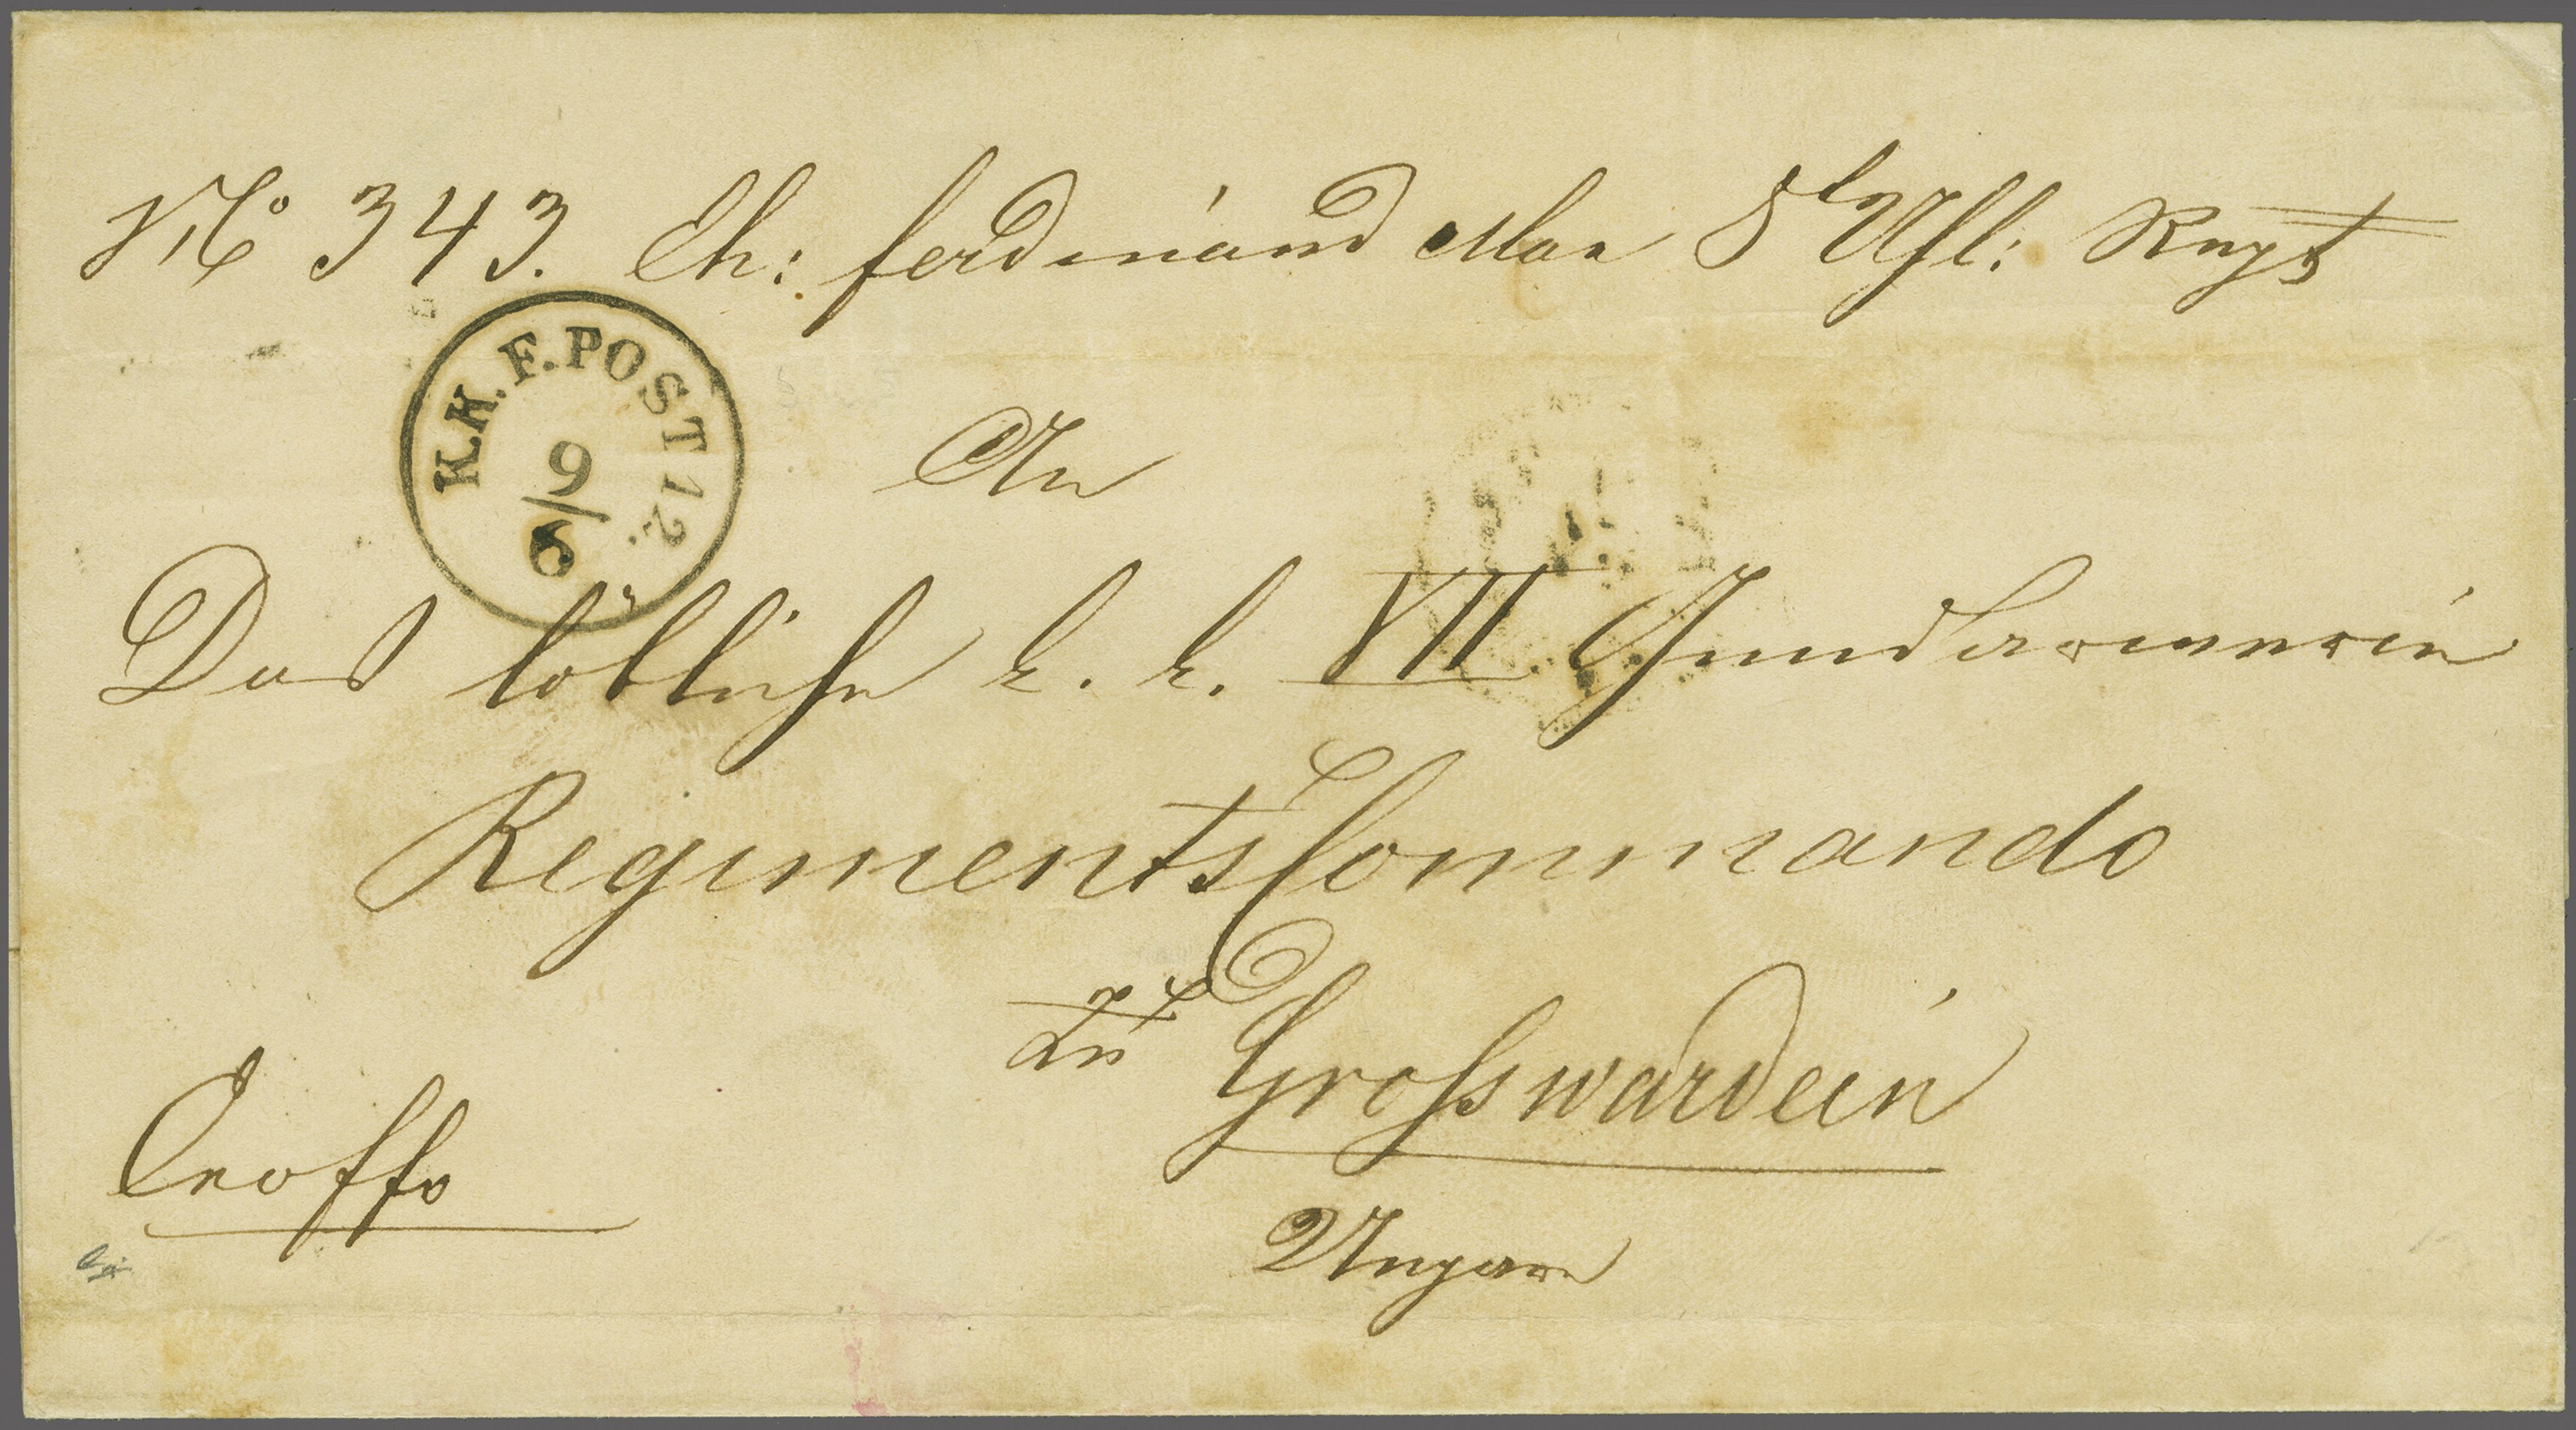 No 343. Eh: Ferdinand Max 8t Uhl: Regt
K.K. F. POST 12.
9/6
An
Das löbliche k. k. VII Gendarmerie
Regiments Commando
zu Grosswardein
Ungarn